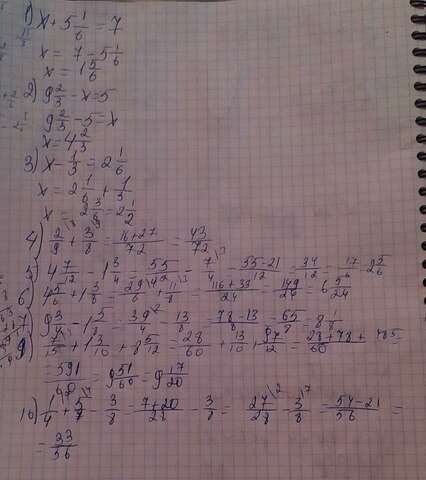 1) x + 5 1/6 = 7
x = 7 - 5 1/6
x = 1 5/6
2) 9 2/3 - x = 5
9 2/3 - 5 = x
x = 4 2/3
3) x - 1/3 = 2 1/6
x = 2 1/6 + 1/3
x = 2 3/6 = 2 1/2
4) 2/9 + 3/8 = 16+27/72 = 43/72
5) 4 7/12 - 1 3/4 = 55/12 - 7/4 = 55-21/12 = 34/12 = 17/6 = 2 5/6
6) 4 5/6 + 1 3/8 = 29/6 + 11/8 = 116+33/24 = 149/24 = 6 5/24
9 3/4 - 1 5/8 = 39/4 - 13/8 = 78-13/8 = 65/8 = 8 1/8
9) 7/15 + 1 3/10 + 8 5/12 = 28/60 + 13/10 + 97/12 = 28+78+ /60
= 591/60 = 9 51/60 = 9 17/20
10) 1/4 + 5/7 - 3/8 = 7+20/28 - 3/8 = 27/28 - 3/8 = 54-21/56 =
= 33/56